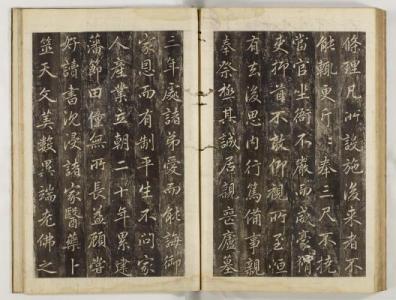 條理凡所設施後來者不
能輒更斤〻奉三尺不撓
當官坐衙不嚴而威豪猾
吏抑首不敢仰視所至洹
有去後思内行篤備事親
奉祭極其誠居親喪廬墓
三年處諸弟愛而能誨御
家恩而有制平生不問家
人產業立朝二十年累建
藩節田僮無所長益顧嘗
好讀書次浸諸家醫藥卜
筮天文算數異端老佛之